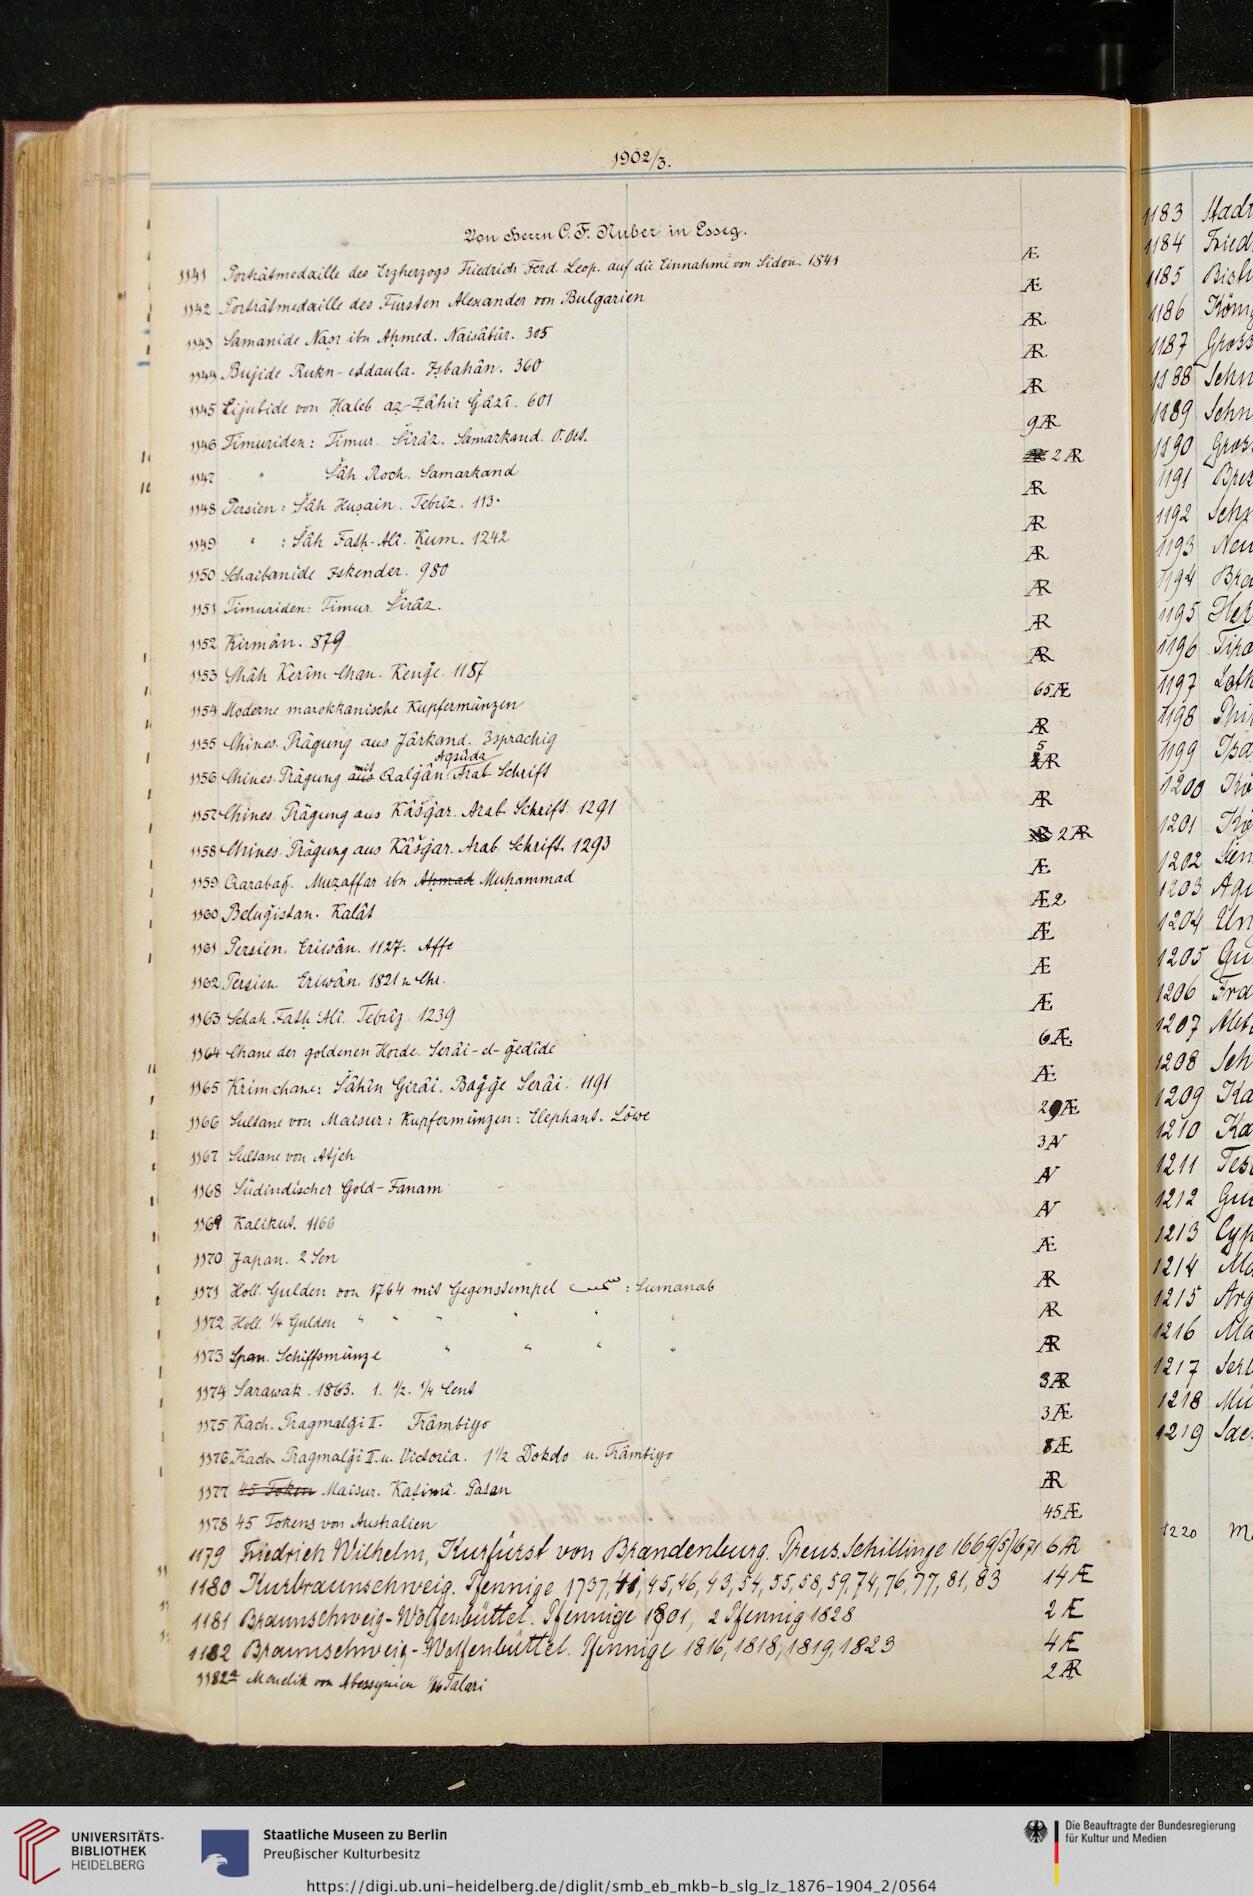 1902/3.
Von Herrn C. F. Nuber in Esseg.
1141 Porträtmedaille des Erzherzogs Friedrich Ferd. Leop. auf die Einnahme von Sidon. 1841 Æ
1142 Porträtmedaille des Fürsten Alexander von Bulgarien Æ
1143 Samanide Naṣr ibn Aḥmed. Naisâbûr. 305 AR
1144 Bujide Rukn-eddaula. Iṣbahân. 360 AR
1145 Eijubide von Haleb az-Zâhir Ġâzî. 601 AR
1146 Timuriden: Timur. Šîrâz. Samarkand. 9 AR
1147 " Šâh Roch. Samarkand 2 AR
1148 Persien: Šâh Ḥusain. Tebrîz. 113· AR
1149 " : Šâh Fatḥ-Alî. Ḳum. 1242 AR
1150 Schaibanide Iskender. 980 AR
1151 Timuriden: Timur. Šîrâz. AR
1152 Kirmân. 879 AR
1153 Shâh Kerîm Chan. Kenǧe. 1187 AR
1154 Moderne marokkanische Kupfermünzen 65 Æ
1155 Chines. Prägung aus Jârkand. 3sprachig AR
1156 Chines. Prägung aus mit Qalǧân Aqsûda Arab Schrift 5 AR
1157 Chines. Prägung aus Kâšġar. Arab. Schrift. 1291 AR
1158 Chines. Prägung aus Kâšġar. Arab. Schrift. 1293 2 AR
1159 Qarabaġ. Muẓaffar ibn Aḥmad Muḥammad Æ
1160 Beluǧistan. Kalât Æ 2
1161 Persien. Eriwân. 1127. Affe Æ
1162 Persien Eriwân. 1821 n Chr. Æ
1163 Schah Fatḥ Alî. Tebrîz. 1239 Æ
1164 Chane der goldenen Horde. Serâi-el-ǧedîde 6 Æ
1165 Krimchane: Šâhîn Girâi. Baġǧe Serâi. 1191 Æ
1166 Sultane von Maisur: Kupfermünzen: Elephant. Löwe 29 Æ
1167 Sultane von Atjeh 3 AV
1168 Südindischer Gold-Fanam AV
1169 Kalikut. 1166 AV
1170 Japan. 2 Sen Æ
1171 Holl. Gulden von 1764 mit Gegenstempel : Sumanab AR
1172 Holl. 1/4 Gulden " " " " " AR
1173 Span. Schiffsmünze " " " " AR
1174 Sarawak. 1863. 1. 1/2. 1/4 Cent 3 AR
1175 Kach. Pragmalǧi II. Trâmbiyo 3 Æ
1176 Kach Pragmalǧi II. u. Victoria. 1 1/2 Dokdo u. Trâmbiyo 8 Æ
1177 45 Token Maisur. Kaṣimî. Patan AR
1178 45 Tokens von Australien 45 Æ
1179 Friedrich Wilhelm, Kurfürst von Brandenburg. Preus. Schillinge 1669(5) 1671 6 AR
1180 Kurbraunschweig. Pfennige 1737, 41, 45, 46, 43, 54, 55, 58, 59, 74, 76, 77, 81, 83 14 Æ
1181 Braunschweig-Wolfenbüttel. Pfennige 1801, 2 Pfennig 1828 2 Æ
1182 Braunschweig-Wolfenbüttel. Pfennige 1816, 1818, 1819, 1823 4 Æ
1182a Menelik von Abessynien 1/16 Talari 2 AR
1183 Stadt
1184 Fried
1185
1186 König
1187 Gross
1188
1189
1190 Gross
1191
1192
1193
1194
1195
1196
1197
1198
1199
1200
1201
1202
1203
1204
1205
1206
1207
1208
1209
1210
1211
1212
1213
1214
1215
1216
1217
1218
1219
1220
UNIVERSITÄTS-
BIBLIOTHEK
HEIDELBERG
Staatliche Museen zu Berlin
Preußischer Kulturbesitz
Die Beauftragte der Bundesregierung
für Kultur und Medien
https://digi.ub.uni-heidelberg.de/diglit/smb_eb_mkb-b_slg_lz_1876-1904_2/0564